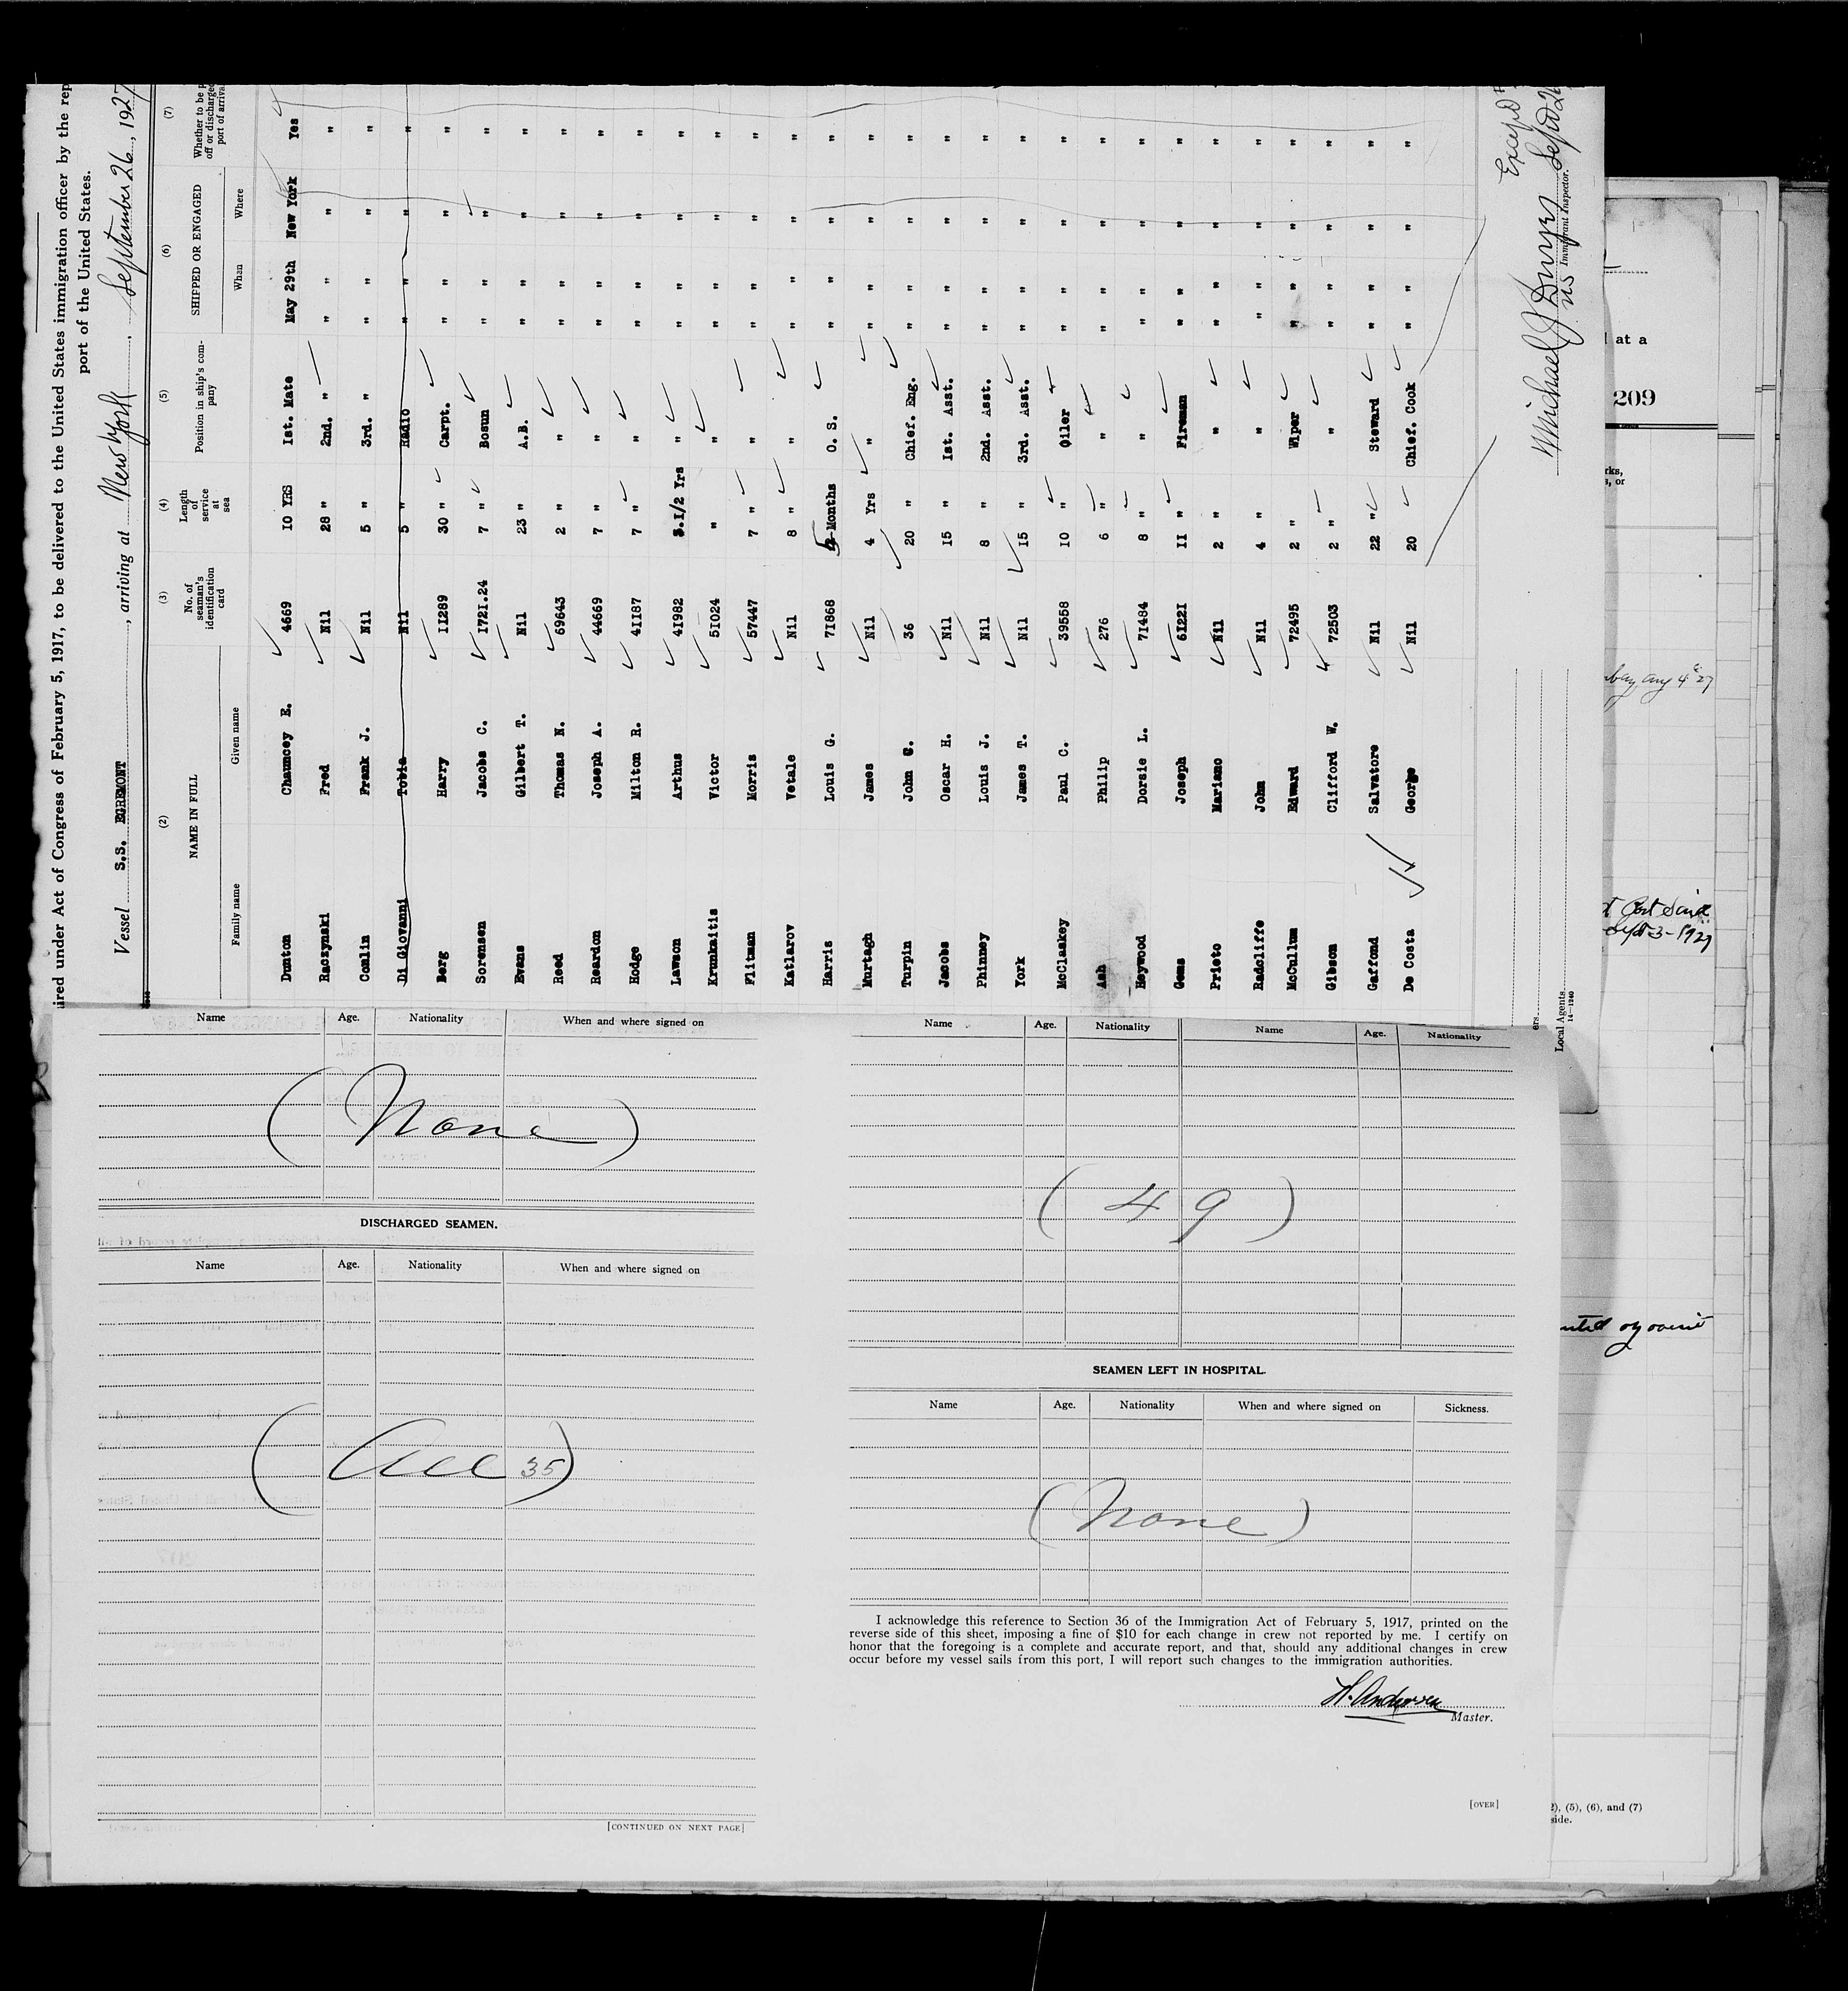 ired under Act of Congress of February 5, 1917, to be delivered to the United States immigration officer by the rep
port of the United States.
Vessel S.S. EGREMONT, arriving at New York, September 26, 1927
(2) (3) (4) (5) (6) (7)
NAME IN FULL No. of seaman's identification card Length of service at sea Position in ship's company SHIPPED OR ENGAGED Whether to be p off or discharged port of arrival
Family name Given name When Where
Dunton Chauncey E. 4669 10 YRS 1st. Mate May 29th New York Yes
Raczynski Fred Nil 28 " 2nd. " " " " "
Conlin Frank J. Nil 5 " 3rd. " " " " "
Di Giovanni Tobia Nil 5 " Radio " " " "
Berg Harry 11289 30 " Carpt. " " " "
Sorensen Jacobs C. 1721.24 7 " Bosun " " " "
Evans Gilbert T. Nil 23 " A.B. " " " "
Reed Thomas N. 69643 2 " " " " " "
Reardon Joseph A. 44669 7 " " " " " "
Hodge Milton R. 41187 7 " " " " " "
Lawson Arthus 41982 3.1/2 Yrs " " " " "
Krumkaitis Victor 51024 " " " " " "
Flitman Morris 57447 7 " " " " " "
Katlarov Vetale Nil 8 " " " " " "
Harris Louis G. 71868 Months O. S. " " " "
Murtagh James Nil 4 Yrs " " " " "
Turpin John C. 36 20 " Chief. Eng. " " " "
Jacobs Oscar H. Nil 15 " 1st. Asst. " " " "
Phinney Louis J. Nil 8 " 2nd. Asst. " " " "
York James T. Nil 15 " 3rd. Asst. " " " "
McClaskey Paul C. 39558 10 " Oiler " " " "
Ash Phillip 276 6 " " " " " "
Heywood Dorsie L. 71484 8 " " " " " "
Gems Joseph 61221 11 " Fireman " " " "
Prieto Mariano Nil 2 " " " " " "
Radcliffe John Nil 4 " " " " " "
McCullum Edward 72495 2 " Wiper " " " "
Gibson Clifford W. 72503 2 " " " " " "
Gaffond Salvatore Nil 22 " Steward " " " "
De Costa George Nil 20 " Chief. Cook " " " "
Michael J Dwyer
Immigrant Inspector.
ers
Local Agents
14—1240
at a
209
rks,
s, or
Aug 4 27
t Port Said
Sept 3-1927
Name Age. Nationality When and where signed on
(None)
DISCHARGED SEAMEN.
Name Age. Nationality When and where signed on
(All 35)
[CONTINUED ON NEXT PAGE]
Name Age. Nationality Name Age. Nationality
(49)
SEAMEN LEFT IN HOSPITAL.
Name Age. Nationality When and where signed on Sickness.
(None)
I acknowledge this reference to Section 36 of the Immigration Act of February 5, 1917, printed on the
reverse side of this sheet, imposing a fine of $10 for each change in crew not reported by me. I certify on
honor that the foregoing is a complete and accurate report, and that, should any additional changes in crew
occur before my vessel sails from this port, I will report such changes to the immigration authorities.
H. Andersen
Master.
[OVER]
2), (5), (6), and (7)
side.